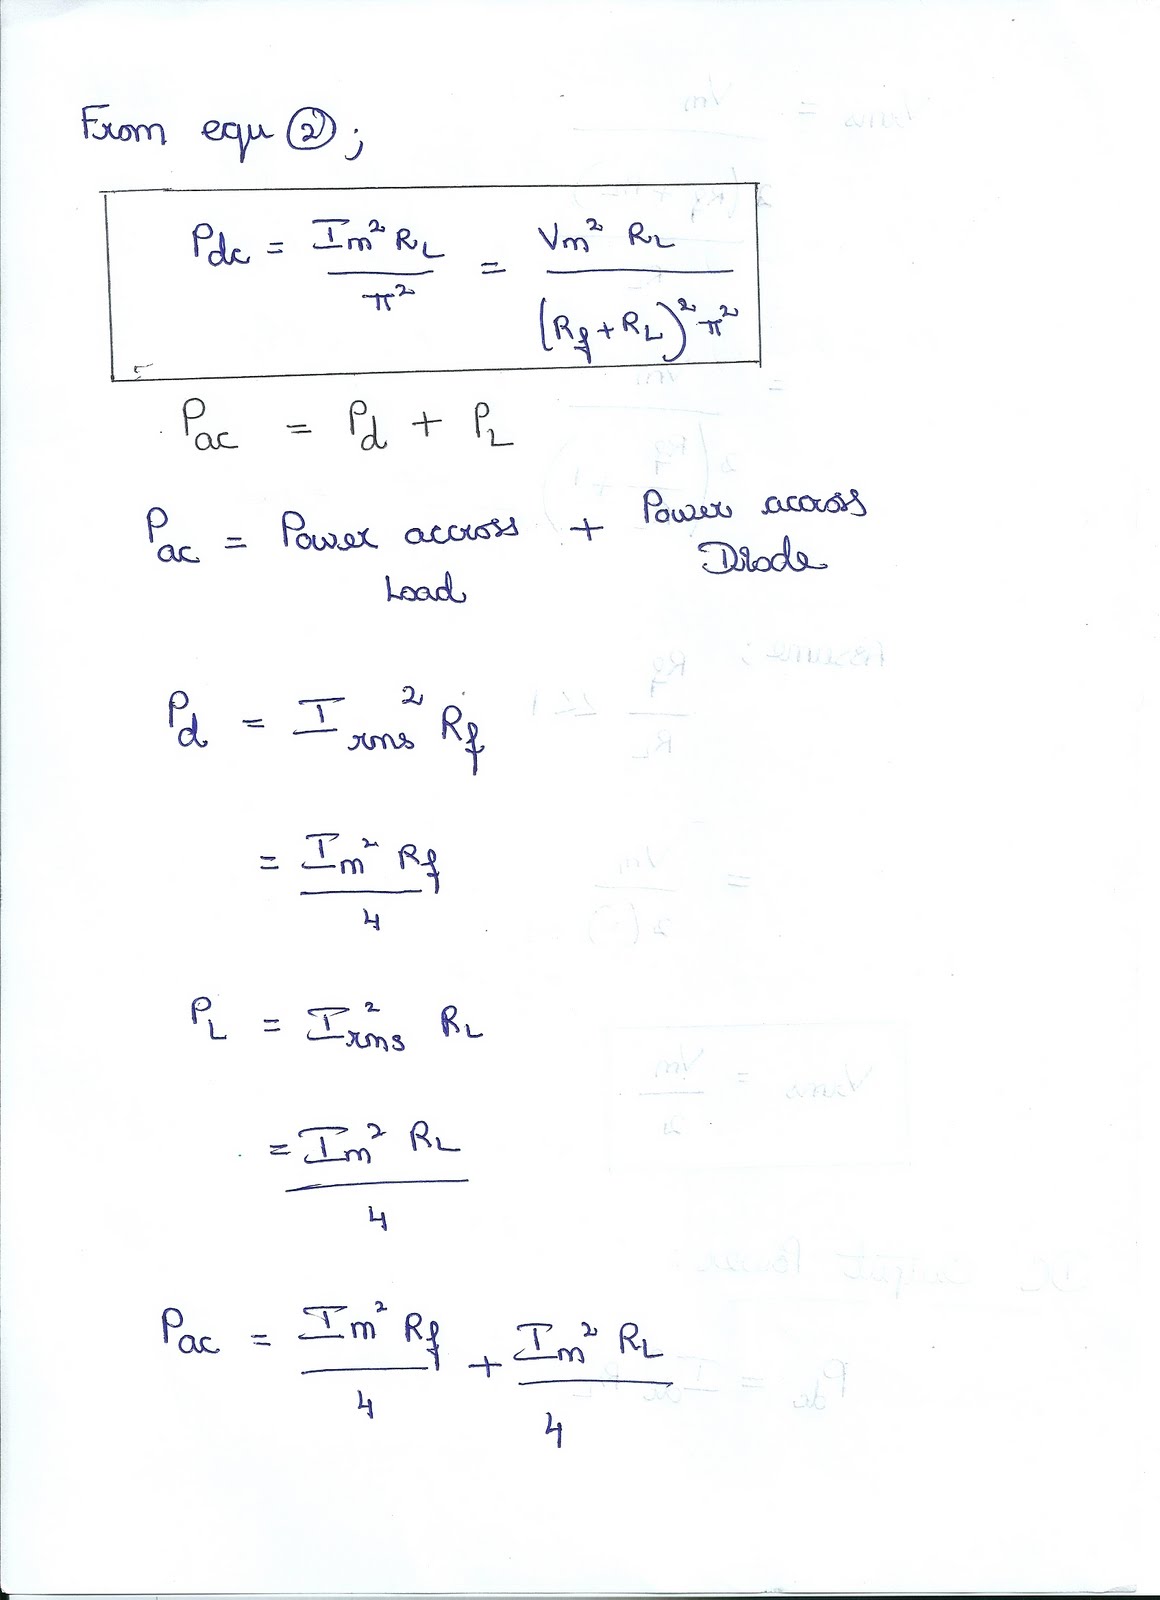 From equ ②;
Pdc = Im² RL / π² = Vm² RL / (Rf + RL)² π²
Pac = Pd + PL
Pac = Power accross Load + Power across Diode
Pd = Irms² Rf
= Im² Rf / 4
PL = Irms² RL
= Im² RL / 4
Pac = Im² Rf / 4 + Im² RL / 4